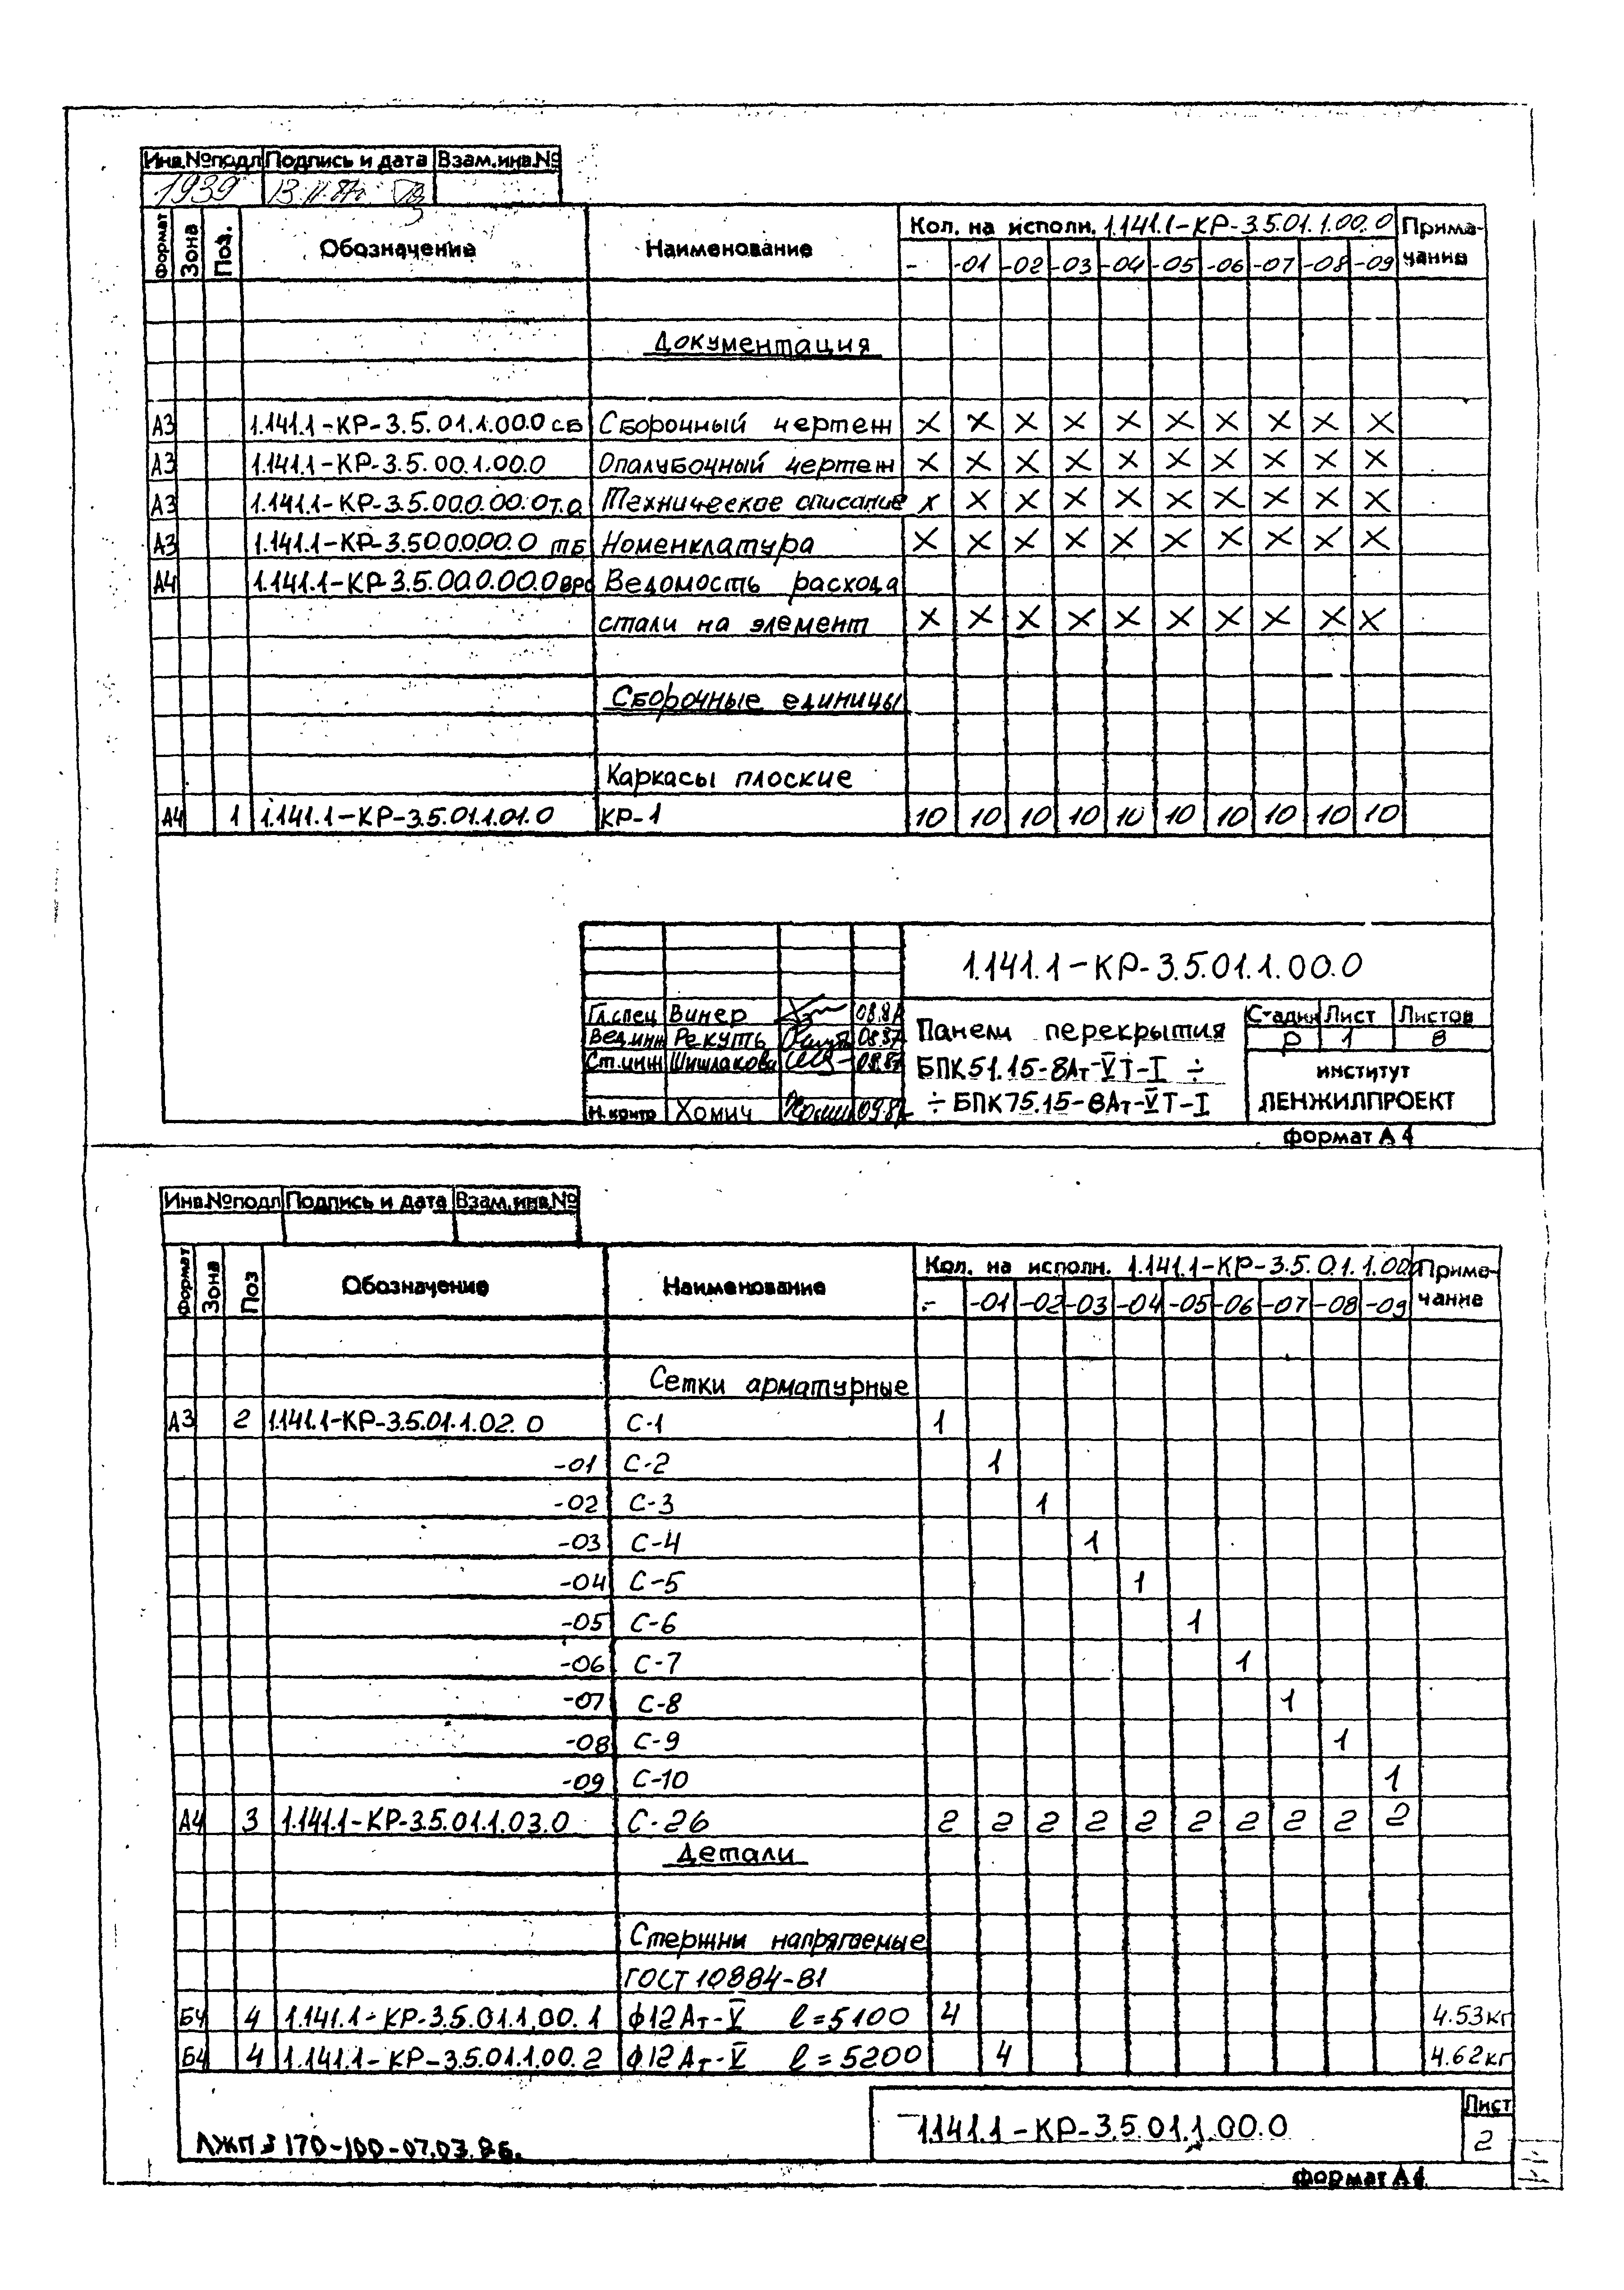 Инв.№подл Подпись и дата Взам.инв.№
1939 13.11.87г.
Формат Зона Поз. Обозначение Наименование Кол. на исполн. 1.141.1-КР-3.5.01.1.00.0 Приме-
- -01 -02 -03 -04 -05 -06 -07 -08 -09 чание
Документация
А3 1.141.1-КР-3.5.01.1.00.0 СБ Сборочный чертеж X X X X X X X X X X
А3 1.141.1-КР-3.5.00.1.00.0 Опалубочный чертеж X X X X X X X X X X
А3 1.141.1-КР-3.5.00.0.00.0Т.О Техническое описание X X X X X X X X X X
А3 1.141.1-КР-3.5.00.0.00.0 ТБ Номенклатура X X X X X X X X X X
А4 1.141.1-КР-3.5.00.0.00.0ВРС Ведомость расхода
стали на элемент X X X X X X X X X X
Сборочные единицы
Каркасы плоские
А4 1 1.141.1-КР-3.5.01.1.01.0 КР-1 10 10 10 10 10 10 10 10 10 10
1.141.1-КР-3.5.01.1.00.0
Гл.спец Винер 08.87
Вед.инж Рекуть 08.87
Ст.инж Шишлакова 08.87
Н.контр Хомич 09.87
Панели перекрытия
БПК51.15-8Ат-VТ-I ÷
÷ БПК75.15-8Ат-VТ-I
Стадия Лист Листов
Р 1 8
институт
ЛЕНЖИЛПРОЕКТ
формат А4
Инв.№подл Подпись и дата Взам.инв.№
Формат Зона Поз Обозначение Наименование Кол. на исполн. 1.141.1-КР-3.5.01.1.00.0 Приме-
- -01 -02 -03 -04 -05 -06 -07 -08 -09 чание
Сетки арматурные
А3 2 1.141.1-КР-3.5.01.1.02.0 С-1 1
-01 С-2 1
-02 С-3 1
-03 С-4 1
-04 С-5 1
-05 С-6 1
-06 С-7 1
-07 С-8 1
-08 С-9 1
-09 С-10 1
А4 3 1.141.1-КР-3.5.01.1.03.0 С-26 2 2 2 2 2 2 2 2 2 2
Детали
Стержни напрягаемые
ГОСТ 10884-81
Б4 4 1.141.1-КР-3.5.01.1.00.1 ф12Ат-V ℓ=5100 4 4.53кг
Б4 4 1.141.1-КР-3.5.01.1.00.2 ф12Ат-V ℓ=5200 4 4.62кг
1.141.1-КР-3.5.01.1.00.0
Лист
2
ЛЖП З 170-100-07.03.86.
формат А4